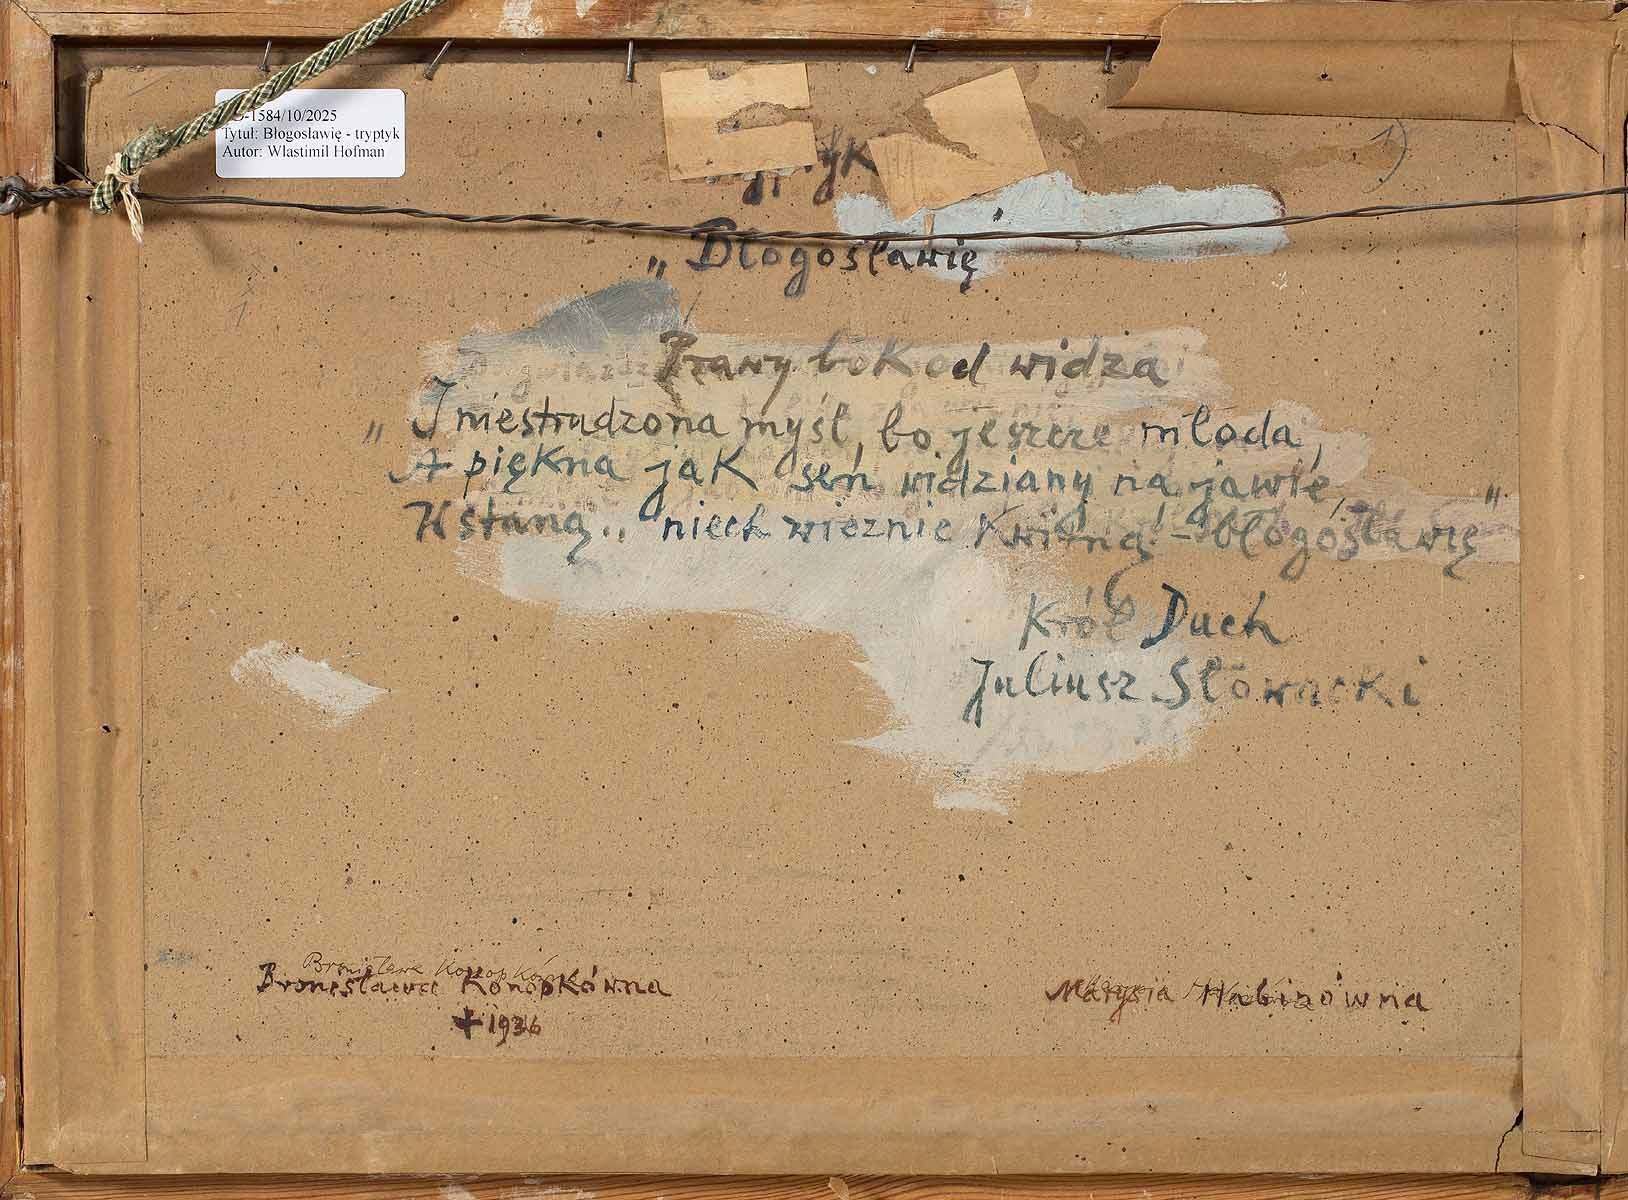 -1584/10/2025
Tytuł: Błogosławię - tryptyk
Autor: Wlastimil Hofman
1)
„Błogosławię
Prawy bok od widza
„I niestrudzona myśl, bo jeszcze młoda,
A piękna jak sen widziany na jawie,
Wstaną.. niech wiecznie kwitną! - błogosławię"
Król Duch
Juliusz Słowacki
Bronisława Konopkówna
Bronisława Konopkówna
+1936
Marysia Habinówna